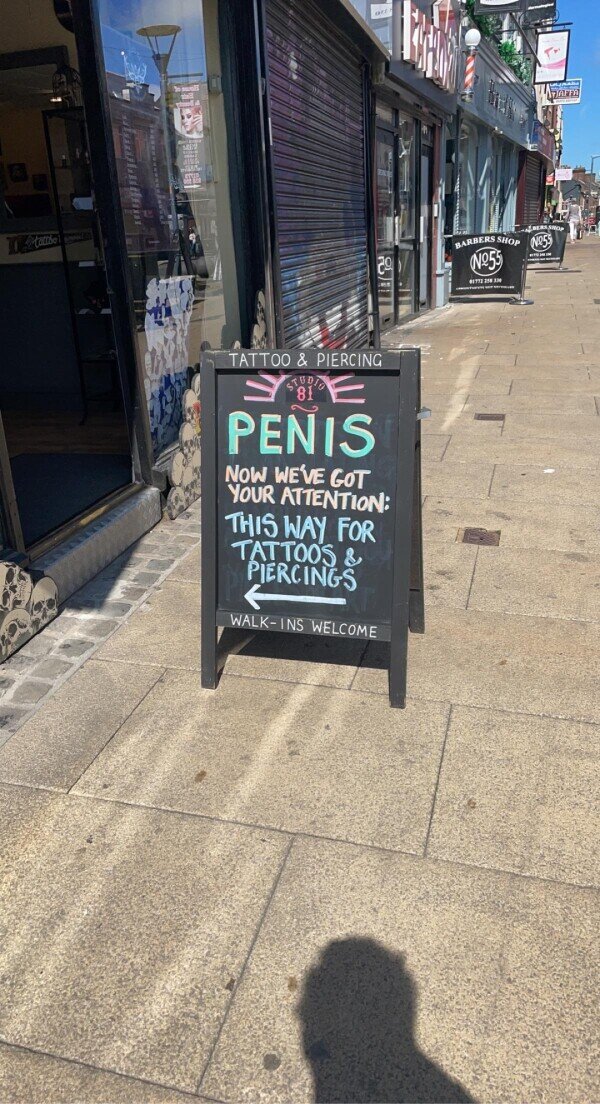 TATTOO & PIERCING
STUDIO
81
PENIS
NOW WE'VE GOT
YOUR ATTENTION:
THIS WAY FOR
TATTOOS &
PIERCINGS
WALK-INS WELCOME
BARBERS SHOP
No55
01772 258 330
BARBERS SHOP
No55